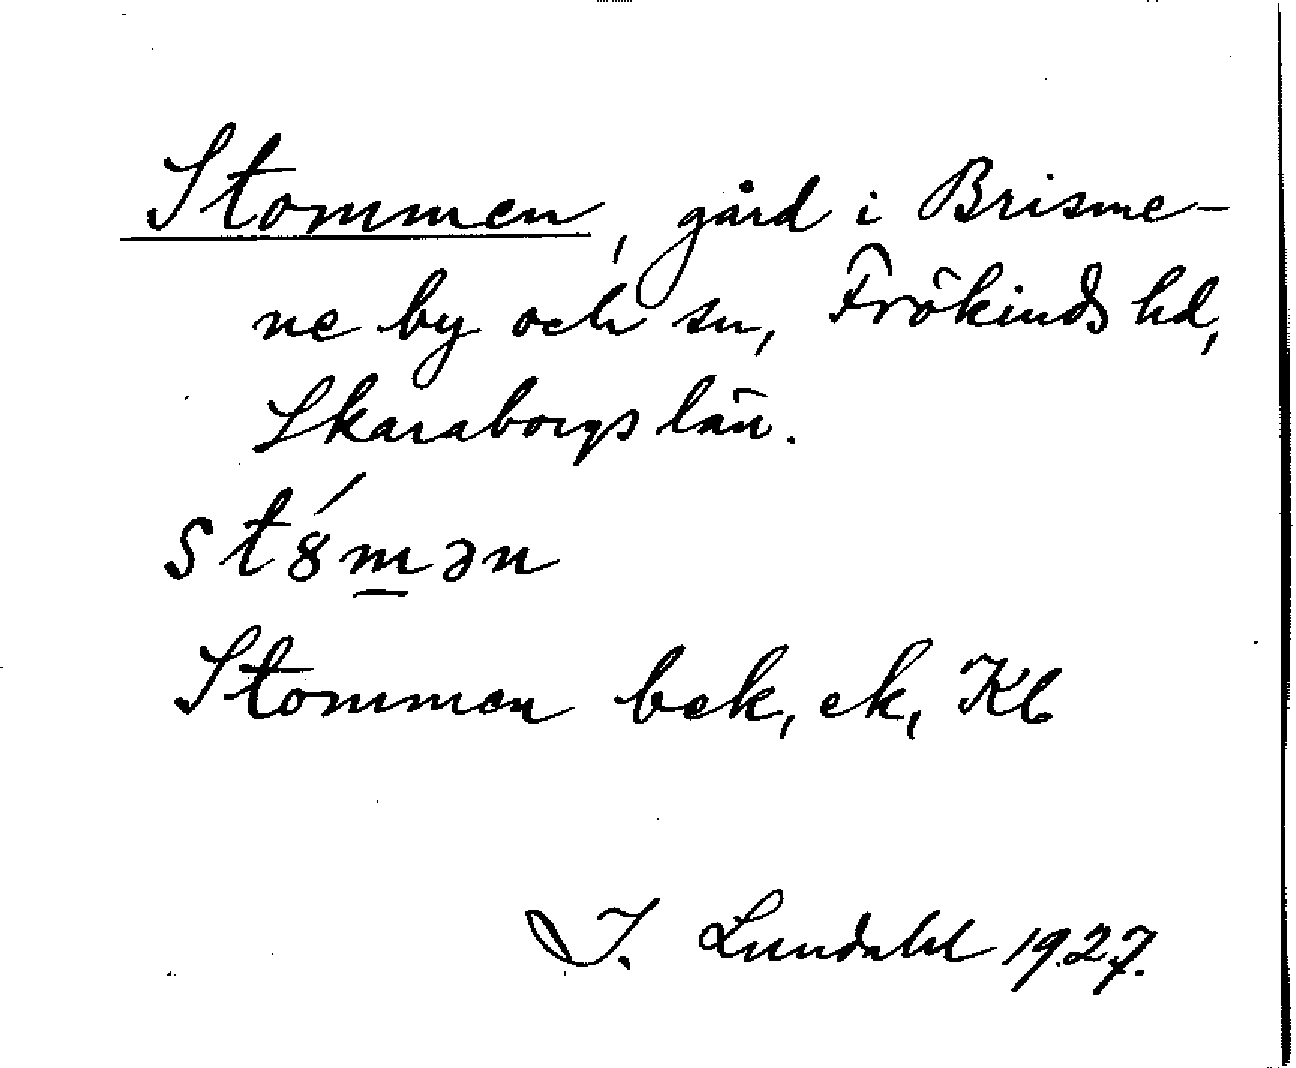 Stommen, gård i Brisme-
ne by och sn, Frökinds hd,
Skaraborgs län.
st8́m̲ən
Stommen bek, ek, Kb
I. Lundahl 1927.